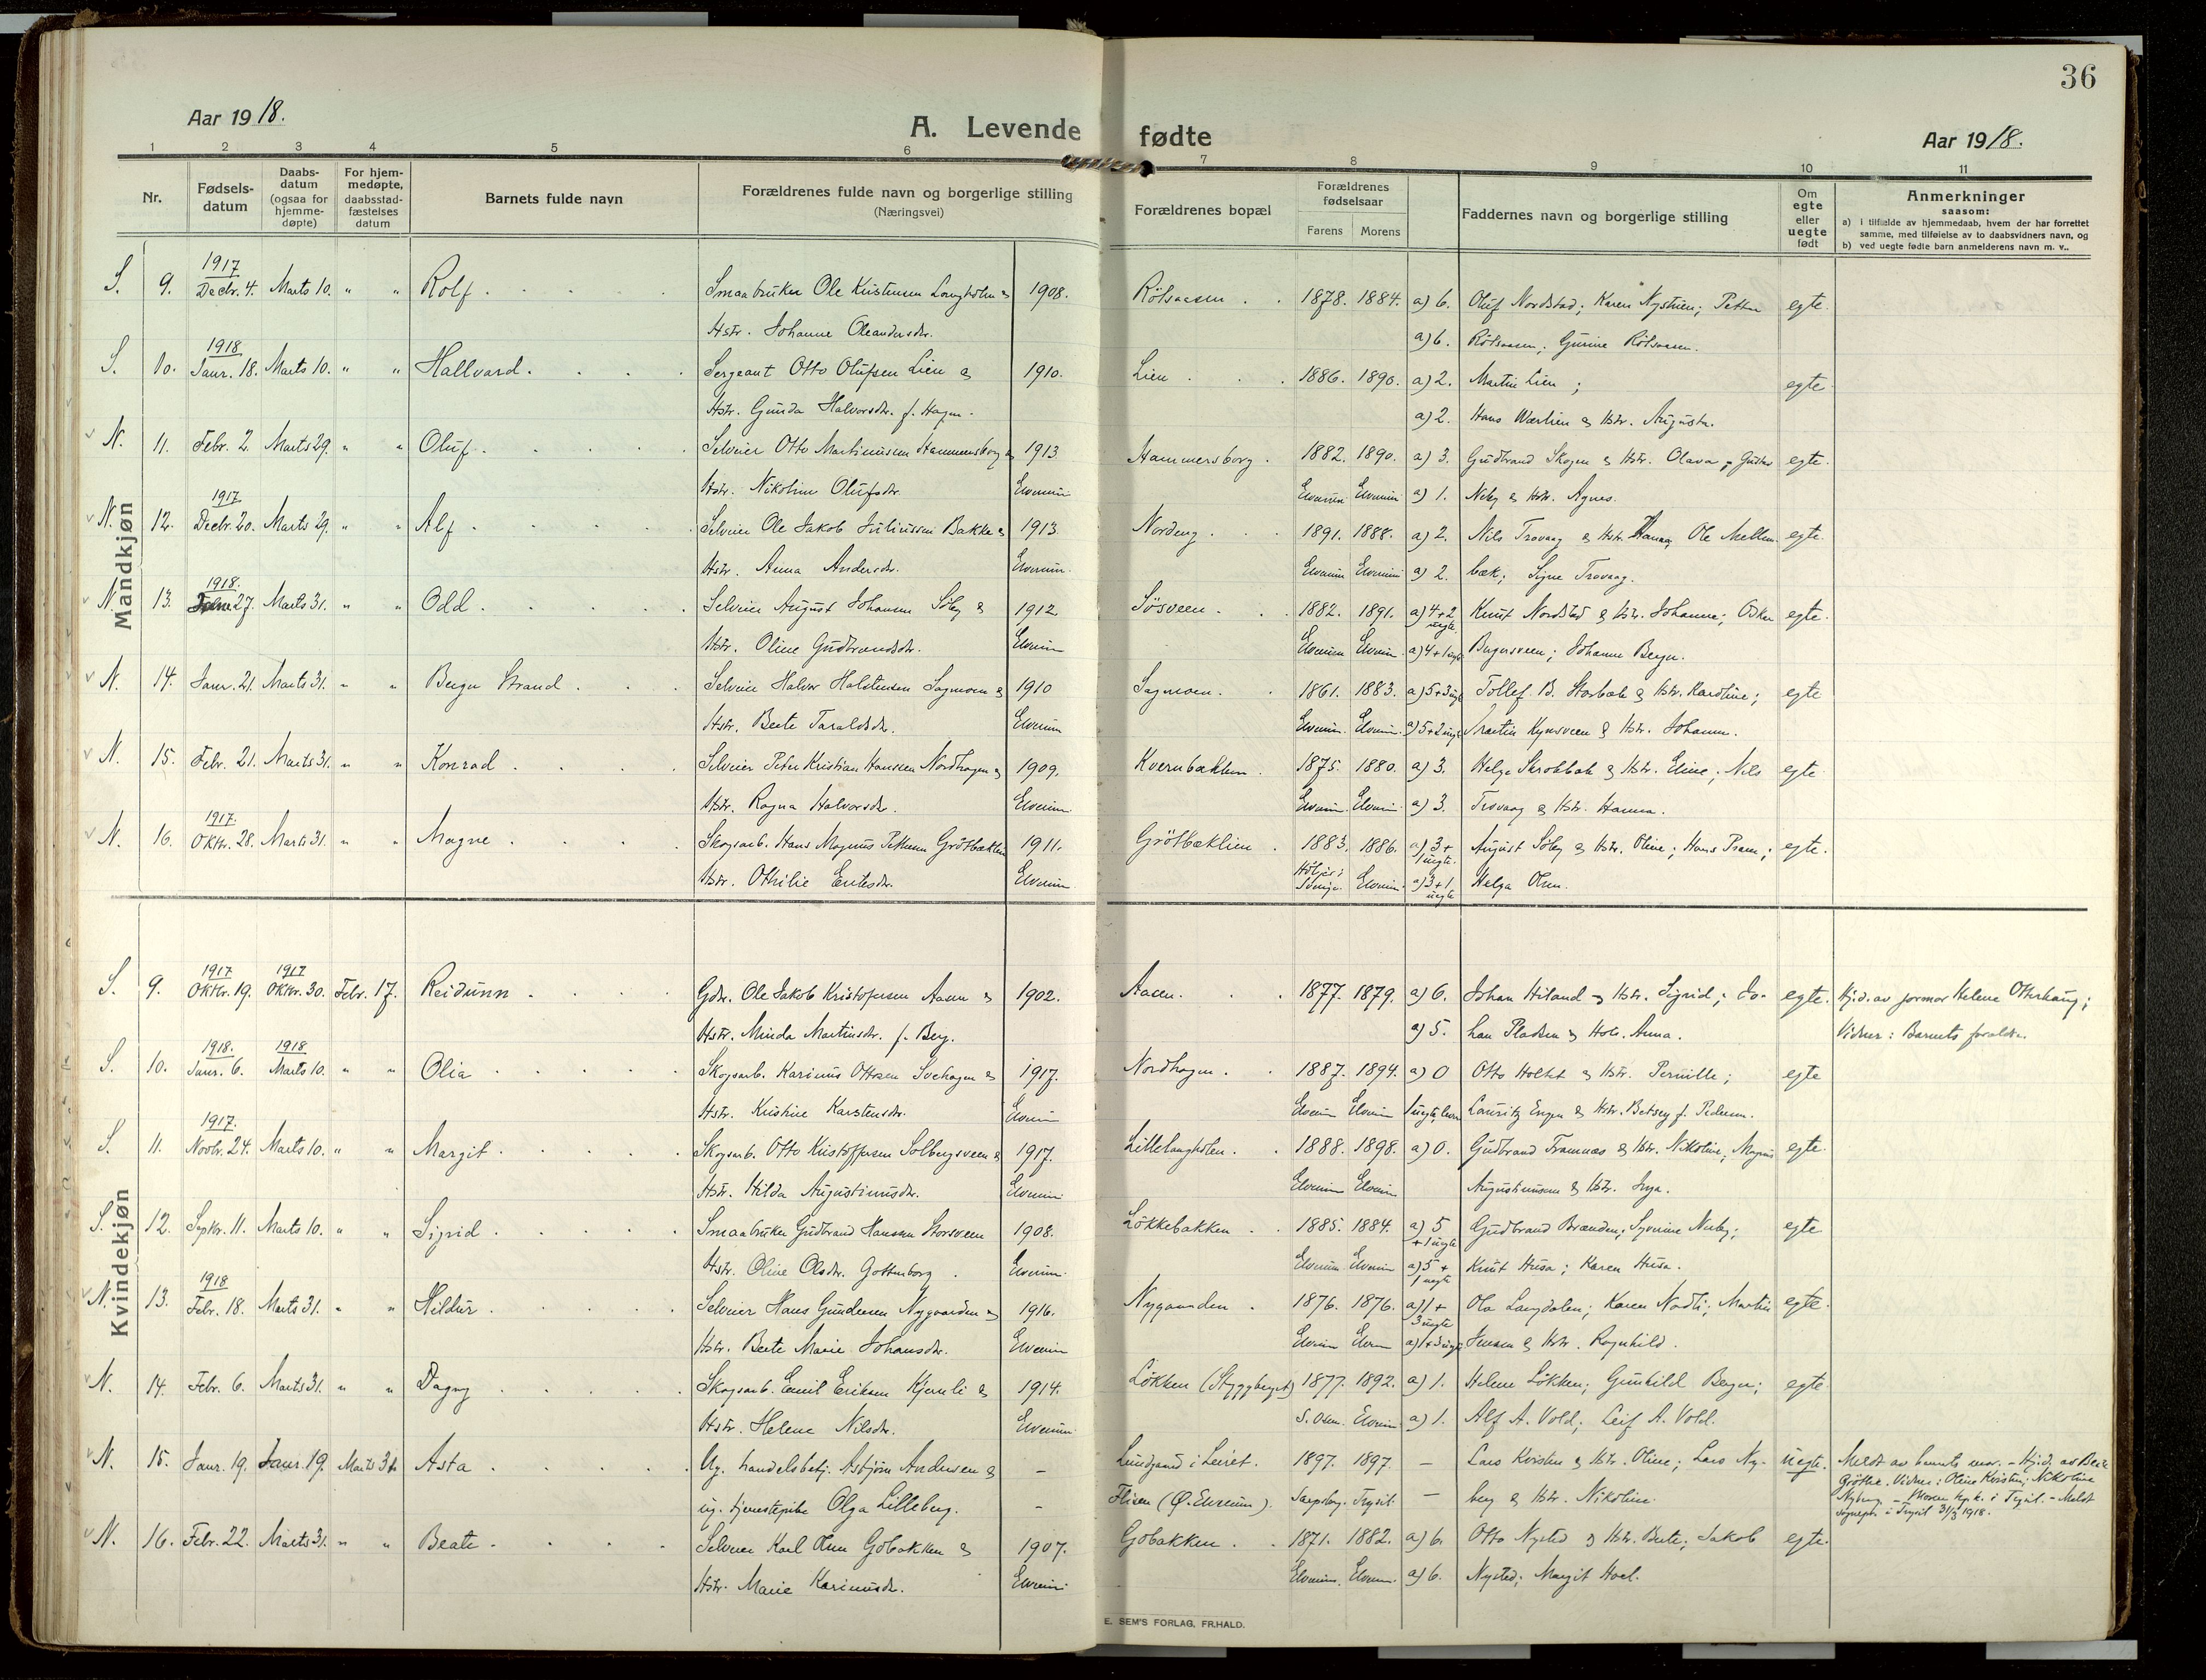 36
Aar 1918.
A. Levende fødte
Aar 1918.
1 2 3 4 5 6 7 8 9 10 11
Nr.
Fødsels-
datum
Daabs-
datum
(ogsaa for
hjemme-
døpte)
For hjem-
medøpte,
daabsstad-
fæstelses
datum
Barnets fulde navn
Forældrenes fulde navn og borgerlige stilling
(Næringsvei)
Forældrenes bopæl
Forældrenes
fødselsaar
Farens Morens
Faddernes navn og borgerlige stilling
Om
egte
eller
uegte
født
Anmerkninger
saasom:
a) i tilfælde av hjemmedaab, hvem der har forrettet
samme, med tilføielse av to daabsvidners navn, og
b) ved uegte fødte barn anmelderens navn m. v..
Mandkjøn
1917
S. 9. Decbr. 4. Marts 10. " " Rolf Smaabruker Ole Kristensen Langholen & 1908. 1878. 1884. a) 6. Oluf Nordstad; Karen Nystuen; Petter egte.
Hstr. Johanne Oleandersdr. a) 6.
1918
S. 10. Janr. 18. Marts 10. " " Hallvard. Sergeant Otto Olufsen Lien & 1910. Lien 1886. 1890. a) 2. Martin Lien; egte.
Hstr. Gunda Halvorsdr. f. Hagen. a) 2. Hans Wærlien & Hstr. Augusta.
N. 11. Febr. 2. Marts 29. " " Oluf. Selveier Otto Martinusen Hammersborg & 1913 Hammersborg. 1882. 1890. a) 3. Gudbrand Skogen & Hstr. Olava; Gustav egte.
Hstr. Nikoline Olufsdr. Elverum Elverum Elverum a) 1. & Hstr. Agnes.
1917
N. 12. Decbr. 20. Marts 29. " " Alf Selveier Ole Jakob Juliussen Bakken & 1913. Nordeng 1891. 1888. a) 2. Nils Trovaag & Hstr. Hanna, Ole Mellem- egte.
Hstr. Anna Andersdr. Elverum. Elverum Elverum a) 2. bæk; Signe Trovaag.
1918.
N. 13. 27. Marts 31. " " Odd. Selveier August Johansen Söby & 1912. Søsveen. 1882. 1891. a) 4+2 uegte Knut Nordstad & Hstr. Johanne; Oskar egte.
Hstr. Oline Gudbrandsdr. Elverum Elverum Elverum a) 4+1 uegte Johanne Bergn.
N. 14. Janr. 21. Marts 31. " " Strand Selveier Halvor Halstensen Sagmoen & 1910 Sagmoen. 1861. 1883. a) 5+3 uegte Tollef B. Storbæk & Hstr. Karoline; egte
Hstr. Beate Taraldsdr. Elverum Elverum. Elverum. a) 5+2 uegte Martin Kynsveen & Hstr. Johanne.
N. 15. Febr. 21. Marts 31. " " Konrad Selveier Peter Kristian Hanssen Nordhagen & 1909. Kvernbakken. 1875. 1880. a) 3. Helge Skrobbak & Hstr. Eline; Nils egte
Hstr. Ragna Halvorsdr. Elverum. Elverum. Elverum a) 3. Trovaag & Hstr. Hanna.
1917.
N. 16. Oktbr. 28. Marts 31. " " Magne Skogsarb. Hans Magnus Pettersen Grötbæklien 1911. Grötbæklien 1883. 1886. a) 3+ 1 uegte. August Söby & Hstr. Oline; Hans egte.
Hstr. Othilie Eriksdr. Elverum Elverum. a) 3+1 uegte Helga Olsen.
Kvindekjøn
1917 1917
S. 9. Oktbr. 19. Oktbr. 30. Febr. 17. Reidunn Gdbr. Ole Jakob Kristofersen Aasen & 1902. Aasen. 1877. 1879. a) 6. Johan Hiland & Hstr. Sigrid; Jo- egte. Hjd. av jormor Helene Otterhaug;
Hstr. Minda Martinsdr. f. Berg. a) 5. han Pladsen & Hstr. Anna. Vidner: Barnets foreldre.
1918. 1918
S. 10. Janr. 6. Marts 10. " " Olia Skogsarb. Karinus Ottosen Svehagen & 1917. Nordhagen. 1887. 1894. a) 0 Otto Holtet & Hstr. Pernille; egte
Hstr. Kristine Karstensdr. Elverum Elverum Elverum 1 uegte Lauritz Engen & Hstr. Betsey f. Pedersen.
1917.
S. 11. Novbr. 24. Marts 10. " " Margit. Skogsarb. Otto Kristoffersen Solbergsveen & 1917. Lillelangholen. 1888. 1898. a) 0. Gudbrand Framnæs & Hstr. Nikoline; Magnus egte.
Hstr. Hilda Augustinusdr. Elverum Elverum Elverum Augustinusen & Hstr. Inga.
S. 12. Septbr. 11. Marts 10. " " Sigrid. Smaabruker Gudbrand Hanssen Storsveen 1908. Løkkebakken 1885. 1884. a) 5 + 1 uegte Gudbrand Brænden; Syverine Nerby; egte
Hstr. Oline Olsdr. Gottenborg. Elverum. Elverum Elverum a) 5 + 1 uegte Knut Husa; Karen Husa.
1918
N. 13. Febr. 18. Marts 31. " " Hildur. Selveier Hans Gundersen Nygaarden & 1916. Nygaarden 1876. 1876. a) 1 + 3 uegte Ola Langdalen; Karen Nordli; Martin egte.
Hstr. Beate Marie Johansdr. Elverum Elverum Elverum a) 1+3 uegte Jensen & Hstr. Ragnhild.
N. 14. Febr. 6. Marts 31. " " Dagny Skogsarb. Emil Eriksen Kjernli & 1914. Løkken (Styggberget) 1877. 1892. a) 1. Helene Løkken; Gunhild Bergn; egte.
Hstr. Helene Nilsdr. Elverum S. Osen. Elverum a) 1. Alf A. Vold; Leif A. Vold.
N. 15. Janr. 19. Janr. 19. Marts 31. Asta Ug. handelsbetj. Asbjørn Andersen & - Lundgaard i Leiret. 1897. 1897. - Lars Kvisten & Hstr. Oline; Lars Ny- uegte. Meldt av barnets mor. - Hjd. av Beate
ug. tjenestepike Olga Lilleberg. - Flisen (Ø. Elverum). Sarpsborg. Trysil. - berg & Hstr. Nikoline. Vidner: Oline Kvisten; Nikoline
Nyberg. - Moren i Trysil. - Meldt
sognepr. i Trysil 31/3 1918.
N. 16. Febr. 22. Marts 31. " " Beate. Selveier Karl Olsen Gobakken & 1907. Gobakken. 1871. 1882. a) 6. Otto Nysted & Hstr. Beate; Jakob egte.
Hstr. Marie Karinusdr. Elverum. Elverum. Elverum. a) 6. Nysted; Margit Hoel.
E. SEM'S FORLAG, FR.HALD.